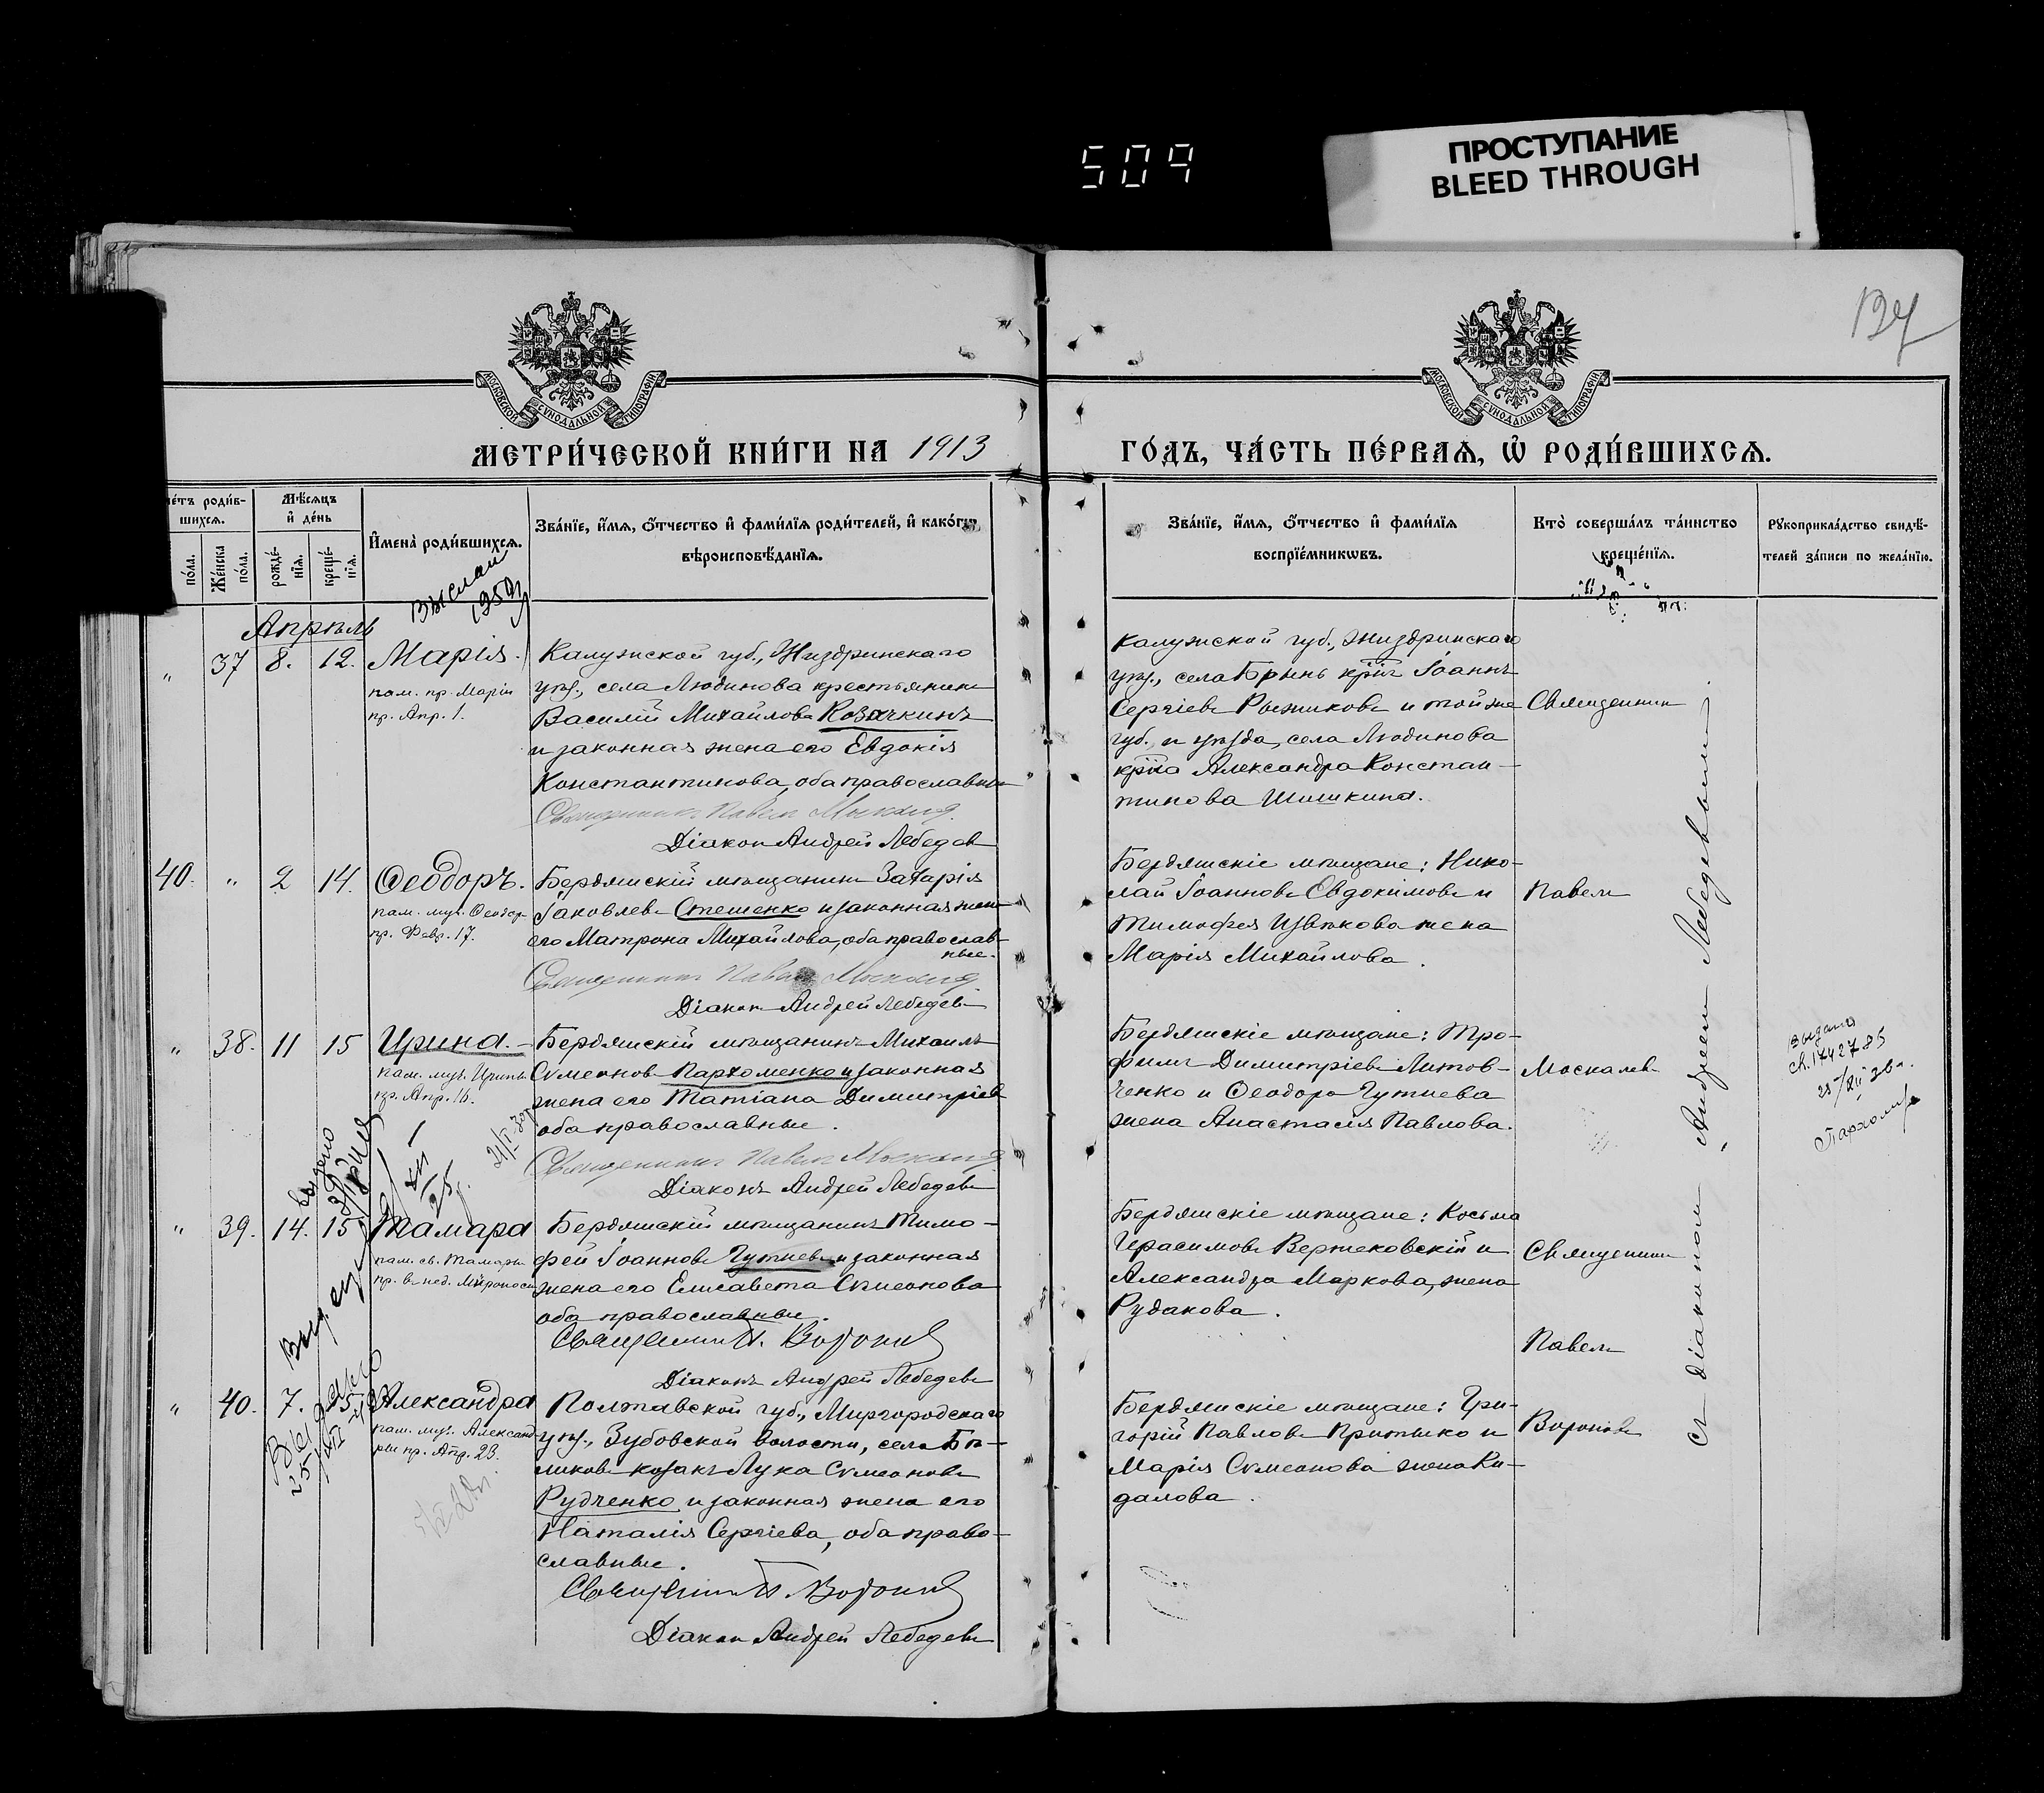 509
ПРОСТУПАНИЕ
BLEED THROUGH
137
МОСКОВСКОЙ СУНОДАЛЬНОЙ ТИПОГРАФІИ
МОСКОВСКОЙ СУНОДАЛЬНОЙ ТИПОГРАФІИ
МЕТРИ́ЧЕСКОЙ КНИ́ГИ НА 1913
ГО́ДЪ, ЧА́СТЬ ПЕ́РВАѦ, Ѽ РОДИ́ВШИХСѦ.
роди́в-
шихсѧ.
по́ла.
Же́нска
по́ла.
Мѣ́сѧцъ
и҆ де́нь
рожде́-
нїѧ.
креще́-
нїѧ.
И҆мена̀ роди́вшихсѧ.
Зва́нїе, и҆́мѧ, ѻ҆́тчество и҆ фами́лїѧ роди́телей, и҆ како́гѡ
вѣроисповѣ́данїѧ.
Зва́нїе, и҆́мѧ, ѻ҆́тчество и҆ фами́лїѧ
воспрїе́мникѡвъ.
Кто̀ соверша́лъ та́инство
креще́нїѧ.
Рꙋкоприкла́дство свидѣ́-
телей за́писи по жела́нїю.
Апрѣль
" 37 8. 12. Марія.
пам. пр. Маріи
пр. Апр. 1.
Калужской губ., Жиздринскаго
уѣз., села Людинова крестьянинъ
Василій Михайловъ Козачкинъ
и законная жена его Евдокія
Константинова, оба православные
Священникъ Павелъ
Діаконъ Андрей Лебедев
Калужской губ., Жиздринскаго
уѣз., села Брынь Іоаннъ
Сергіевъ Рыжиковъ и той же
губ. и уѣзда, села Людинова
Александра Констан-
тинова Шишкина.
Священникъ
40. " 2 14. Ѳеодоръ.
пам. муч. Ѳеодор.
пр. Февр. 17.
Бердянскій мѣщанинъ Захарія
Іаковлевъ Стешенко и законная жена
его Матрона Михайлова, оба православ-
ные.
Священникъ Павелъ
Діаконъ Андрей Лебедевъ
Бердянскіе мѣщане: Нико-
лай Іоанновъ Евдокимовъ и
Тимофея Цвѣткова жена
Марія Михайлова.
Павелъ
" 38. 11 15 Ирина.
пам. муч. Ирины
пр. Апр. 16.
Бердянскій мѣщанинъ Михаилъ
Сѵмеоновъ Пархоменко и законная
жена его Татіана Димитріев
оба православные.
Священникъ Павелъ
Діаконъ Андрей Лебедевъ
Бердянскіе мѣщане: Тро-
фимъ Димитріевъ Литов-
ченко и Ѳеодора Гутнева
жена Анастасія Павлова.
Москалев
выдана
" 39. 14. 15 Тамара
пам. св. Тамары
пр. в нед. Мѵроносиц
Бердянскій мѣщанинъ Тимо-
фей Іоанновъ Гутневъ и законная
жена его Елисавета Сѵмеонова
оба православные.
Священникъ П. Воронов
Діаконъ Андрей Лебедевъ
Бердянскіе мѣщане: Косьма
Герасимовъ Вержековскій и
Александра Маркова, жена
Рудакова.
Священникъ
Павелъ
" 40. 7. 15 Александра
пам. муч. Александ-
ры пр. Апр. 23.
Полтавской губ., Миргородскаго
уѣз., Зубовской волости, села Бѣ-
ликовъ козакъ Лука Сѵмеоновъ
Рудченко и законная жена его
Наталія Сергіева, оба право-
славные.
Священникъ П. Воронов
Діаконъ Андрей Лебедевъ
Бердянскіе мѣщане: Гри-
горій Павловъ Притыко и
Марія Сѵмеонова жена Ки-
далова.
Вороновъ
съ діакономъ Андреем Лебедевымъ.